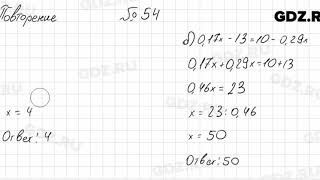 Повторение № 54
GDZ.RU
б) 0,17x - 13 = 10 - 0,29x
0,17x + 0,29x = 10 + 13
0,46x = 23
x = 4
x = 23 : 0,46
x = 50
Ответ: 4
Ответ: 50